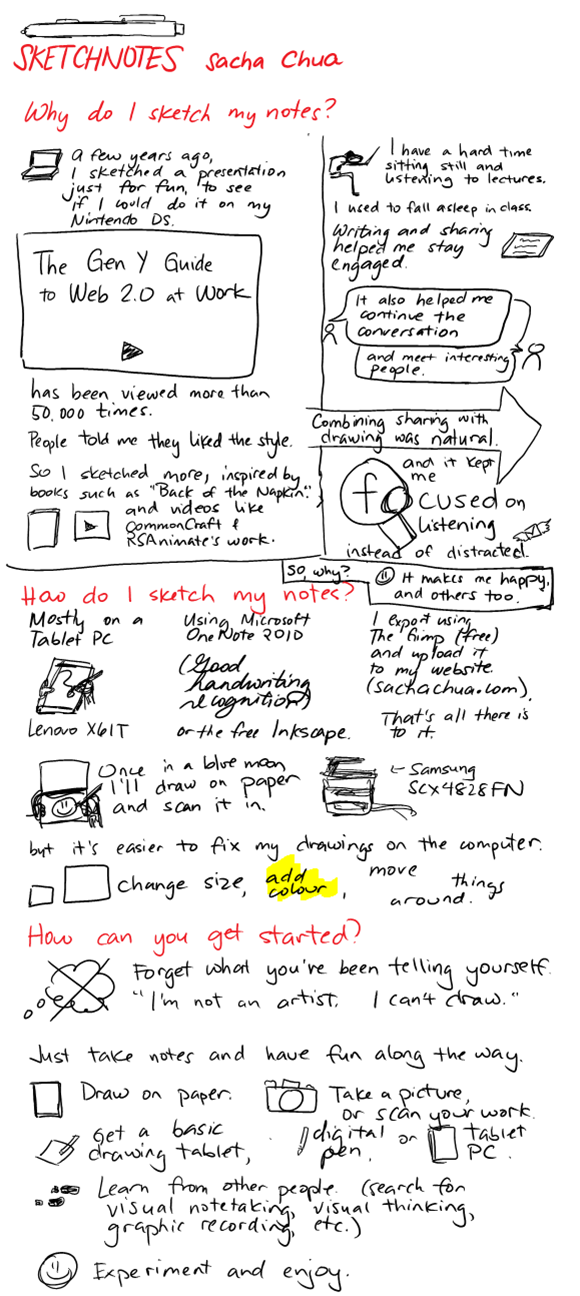 SKETCHNOTES Sacha Chua
Why do I sketch my notes?
A few years ago,
I sketched a presentation
just for fun, to see
if I could do it on my
Nintendo DS.
The Gen Y Guide
to Web 2.0 at Work
has been viewed more than
50,000 times.
People told me they liked the style.
So I sketched more, inspired by
books such as "Back of the Napkin"
and videos like
CommonCraft &
RSAnimate's work.
I have a hard time
sitting still and
listening to lectures.
I used to fall asleep in class.
Writing and sharing
helped me stay
engaged.
It also helped me
continue the
conversation
and meet interesting
people.
Combining sharing with
drawing was natural.
and it kept
me
focused on
listening
instead of distracted.
So, why?
It makes me happy,
and others too.
How do I sketch my notes?
Mostly on a
Tablet PC
Lenovo X61T
Using Microsoft
OneNote 2010
(Good
handwriting
recognition)
or the free Inkscape.
I export using
The Gimp (free)
and upload it
to my website
(sachachua.com).
That's all there is
to it.
Once in a blue moon
I'll draw on paper
and scan it in.
← Samsung
SCX4828FN
but it's easier to fix my drawings on the computer.
change size, add colour, move things around.
How can you get started?
Forget what you've been telling yourself.
"I'm not an artist. I can't draw."
Just take notes and have fun along the way.
Draw on paper.
Take a picture,
or scan your work.
Get a basic
drawing tablet,
digital
pen,
or
tablet
PC.
Learn from other people. (search for
visual notetaking, visual thinking,
graphic recording, etc.)
Experiment and enjoy.